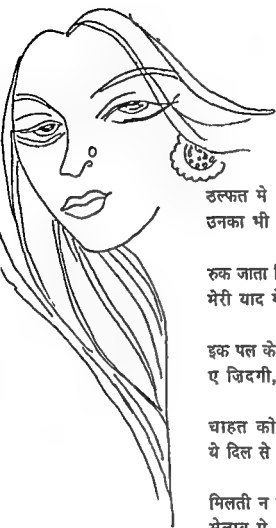 उल्फत मे
उनका भी
रुक जाता
मेरी याद
इक पल के
ए ज़िदगी,
चाहत को
ये दिल से
मिलती न